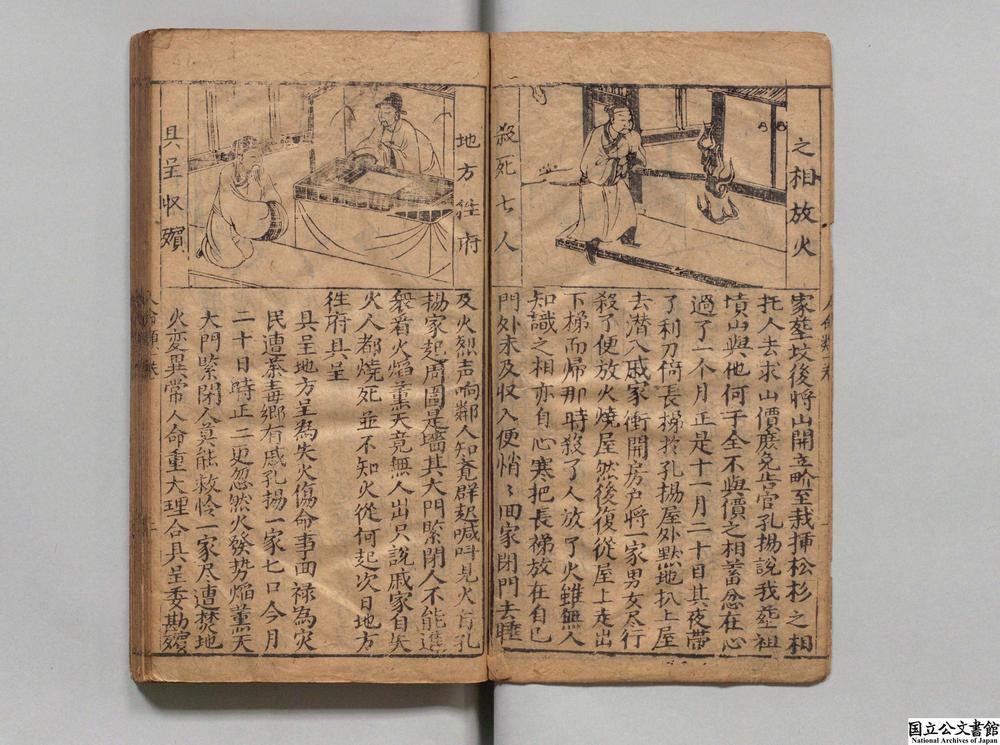 之相放火
殺死七人
家塟坟後將山開立畍至栽揷松杉之相
托人去求山價庶免告官孔揚說我塟祖
墳山與他何干全不與價之相蓄忿在心
過了一个月正是十一月二十日其夜帶
了利刀倚長梯於孔揚屋外黙地扒上屋
去潜入戚家衝開房户將一家男女尽行
殺了便放火燒屋然後復從屋上走出
下梯而帰那時殺了人放了火雖無人
知識之相亦自心寒把長梯放在自已
門外未及收入便悄〻囬家閉門去睡
地方往府
具呈收殯
及火烈声响鄰人知竟群起喊呌見火肯孔
揚家起周圍是墻其大門緊閉人不能進
衆看火焰薰天竟無人出只說戚家自失
火人都燒死並不知火從何起次日地方
徃府具呈
具呈地方呈為失火傷命事面禄為灾
民遭荼毒鄉有戚孔揚一家七口今月
二十日時正二更忽然火發势焰薰天
大門緊閉人莫能救怜一家尽遭焚地
火変異常人命重大理合具呈委勘殯
国立公文書館
National Archives of Japan